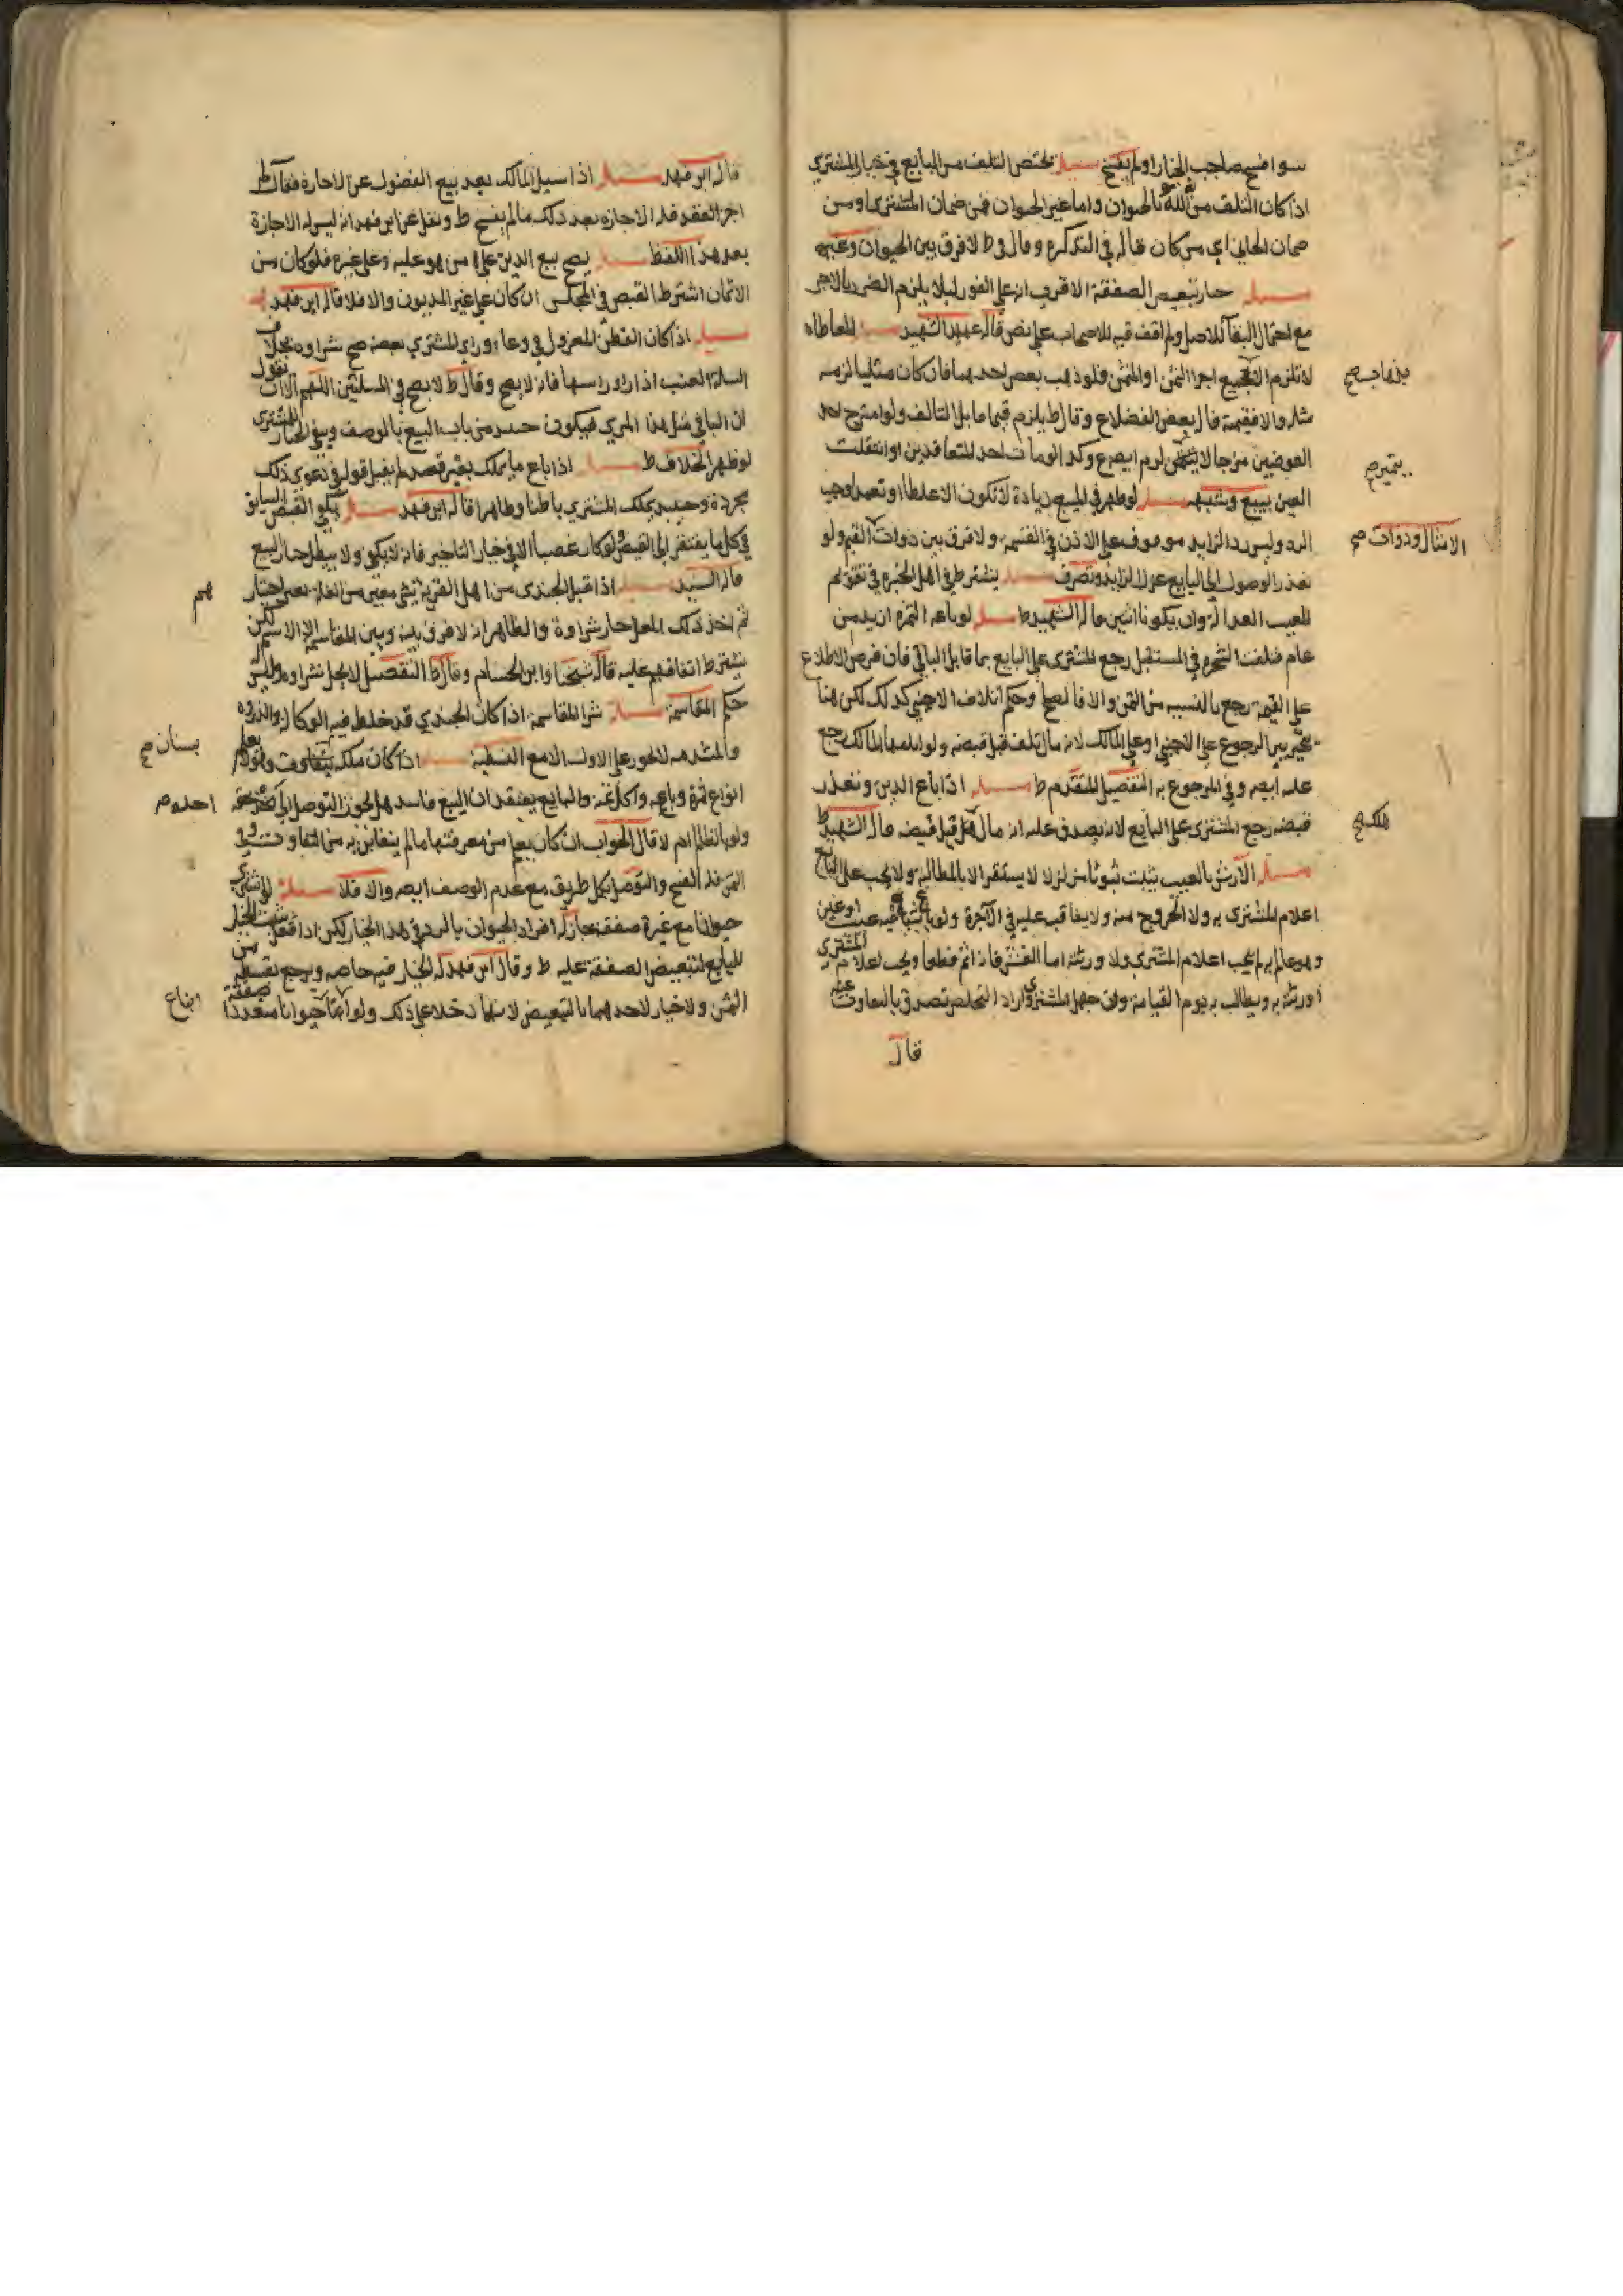 سوا فسخ صاحب الخيار او لم يفسخ مسئلة يختص التلف من البايع في خيار المشتري
اذا كان التلف من الله بالحيوان واما غير الحيوان فمن ضمان المشتري او من
ضمان الجاني اي من كان قاله في التذكرة وقال ط لا فرق بين الحيوان وغيره
مسئلة خيار تبعيض الصفقة الاقرب انه على الفور لئلا يلزم الضرر بالاخر
مع احتمال البقا للاصل ولم اقف فيه للاصحاب على نص قاله عميد الشهيد مسئلة المعاطاه
لا تلزم الا بجميع اجزا الثمن او المثمن فلو ذهب بعض احدهما فان كان مثليا لزمه
بذهاب صح
مثله والا فقيمة قال بعض الفضلاء وقال ط يلزم قيما ما بلا التالف ولو امتزج احد
العوضين مزجا لا يتميز لزم ايضا وكذا لو مات احد المتعاقدين او انتقلت
بتميز صح
العين ببيع وشبهه مسئلة لو ظهر في المبيع زيادة لا تكون الا غلطا او تعمدا وجب
الرد وليس رد الزايد موقوف على الاذن في القسمة ولا فرق بين ذوات القيم ولو
الامثال وذوات صح
تعذر الوصول الى البايع عزل الزايد وتصرف مسئلة يشترط في اهل الخبرة في تقويم
المعيب العدالة وان يكونا اثنين قاله الشهيد ط مسئلة لو باعه الثمرة ازيد من
عام فتلفت الثمرة في المستقبل رجع المشتري على البايع بما قابل الباقي فان فرض الاطلاع
على القيمة رجع بالنسبة من الثمن والا فالصلح وحكم اتلاف الاجنبي كذلك لكن هنا
يتخير بين الرجوع على الاجنبي او على المالك لانه مال تلف قبل قبضه ولو اتلفها المالك رجع
عليه ايضا وفي المرجوع به التفصيل المتقدم ط مسئلة اذا باع الدين وتعذر
قبضه رجع المشتري على البايع لانه يصدق عليه انه مال هلك قبل قبضه قاله الشهيد ط
هلك صح
مسئلة الارش بالعيب يثبت ثبوتا متزلزلا لا يستقر الا بالمطالبة ولا يجب على البايع
اعلام المشتري به ولا الخروج منه ولا يعاقب عليه في الآخرة ولو باع شيئا فيه عيب او غبن
وهو عالم به لم يجب اعلام المشتري ولا ورثته اما الغش فانه اثم قطعا ويجب اعلام المشتري
او ورثته به ويطالب به يوم القيامة وان جهل المشتري واراد التخلص تصدق بالتفاوت عنه
قال
قاله ابن فهد مسئلة اذا سئل المالك بعد بيع الفضول عن الاجازة فقال لم
اجز العقد فله الاجازه بعد ذلك ما لم يفسخ ط ونقل عن ابن فهد انه ليس له الاجازة
بعد هذا اللفظ مسئلة يصح بيع الدين على من هو عليه وعلى غيره فلو كان من
الاثمان اشترط القبض في المجلس ان كان على غير المديون والا فلا قاله ابن فهد
مسئلة اذا كان القطن المعزول في وعاء وراى المشتري بعضه صح شراوه بخلاف
السلة العنب اذا راى راسها فانه لا يصح وقال ط لا يصح في المسئلتين اللهم الا ان يقول
ان الباقي مثل هذا المرئي فيكون من باب البيع بالوصف ويبقى الخيار للمشتري
لو ظهر الخلاف ط مسئلة اذا باع ما يملك بغير قصد لم يقبل قوله في دعوى ذلك
بمجرده وحينئذ يملك المشتري باطنا وظاهرا قاله ابن فهد مسئلة يكفي القبض السابق
في كل ما يفتقر الى القبض ولو كان غصبا الا في خيار التاخير فانه لا يكفي ولا يبطل خيار البيع
قاله السيد مسئلة اذا قبل الجندي من اهل القرية شي معين من الغلة
هم
ثم اخذ ذلك المعين جاز شراوه والظاهر انه لا فرق بينه وبين المقاسمة الا الاسم لكن
يشترط اتفاقهم عليه قاله شيخنا وابن الحسام وقال ط التفصيل لا يحل شراوه وليس
حكم المقاسمة مسئلة شرا المقاسمة اذا كان الجندي قد خلط فيه الوكالة والذروه
لا يجوز على الاول الا مع القسمة مسئلة اذا كان ملكه يتفاوت ولو لم يعلم
بستان صح
انواع ثمرة وباعه واكل ثمنه والبايع يعتقد ان البيع فاسد هل يجوز التوصل الى اخذ حقه
احده صح
ولو بالظالم ام لا قال الجواب ان كان يعلم من معرفتها ما لم يتغابن به من التفاوت في
الثمن فله الفسخ والتوصل بكل طريق مع عدم الوصف ايضا والا فلا مسئلة لو اشترى
حيوانا مع غيره صفقة جاز له افراد الحيوان بالرد في هذا الخيار لكن اذا فعل ثبت الخيار
للبايع لتبعيض الصفقة عليه ط وقال ابن فهد له الخيار فيه خاصة ويرجع بقسطه من
الثمن ولا خيار لاحدهما بالتبعيض لانهما دخلا على ذلك ولو ابتاع حيوانا متعددا صفقة
ابتاع